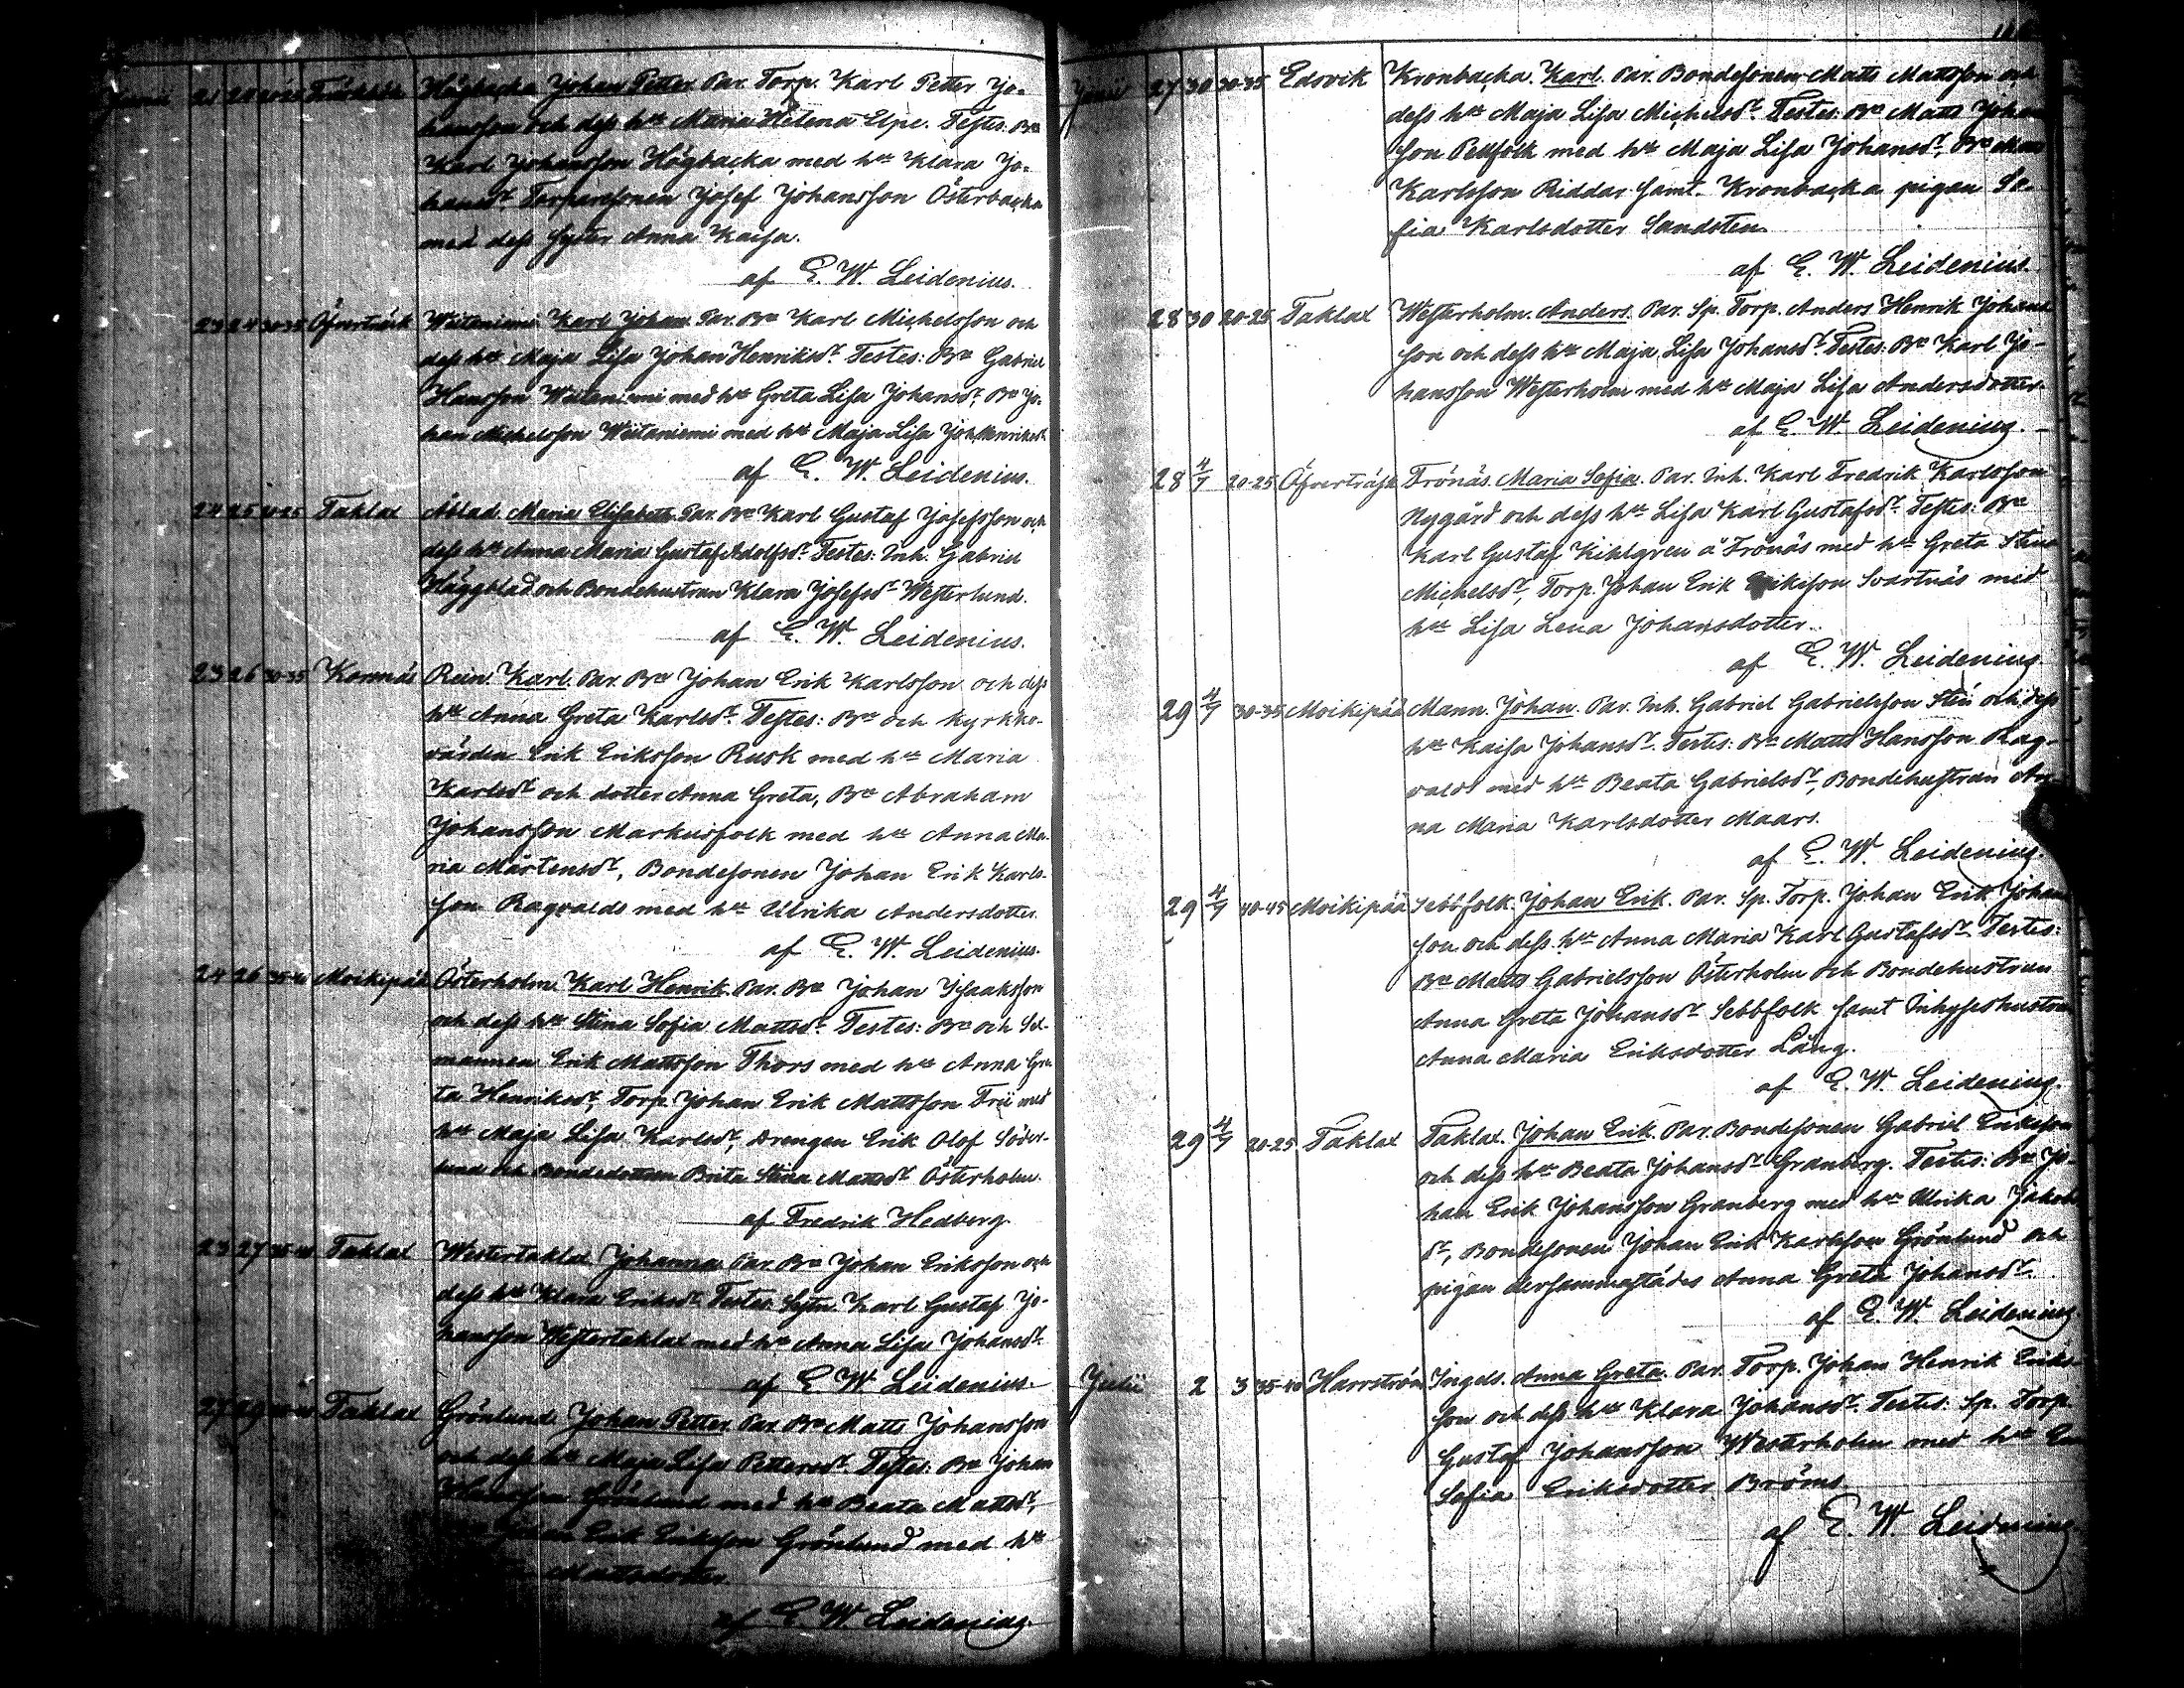 Junii 21 24 Träskvik Högbacka Johan Petter. Par. Torp. Karl Petter Jo-
hansson och dess hu Maria Helena Elpe. Testes: Bn
Karl Johansson Högbacka med hu Klara Jo-
hansdr, Torparesonen Josef Johansson Österbacka
med dess syster Anna Kaisa.
af E. W. Leidenius.
23 24 30-35 Öfverträsk Wiitaniemi Karl Johan. Par. Bn Karl Michelsson och
dess hu Maja Lisa Johan Henriksdr. Testes: Bn Gabriel
Hansson Wiitaniemi med hu Greta Lisa Johansdr, Bn Jo-
han Michelsson Wiitaniemi med hu Maja Lisa Joh. Henriksdr.
af E. W. Leidenius.
24 25 20-25 Taklax Åblad. Maria Elisabeth. Par. Bn Karl Gustaf Josefsson och
dess hu Anna Maria Gustaf Adolfsdr. Testes: Inh. Gabriel
Häggblad och Bondehustrun Klara Josefsdr Westerlund.
af E. W. Leidenius.
23 26 30-35 Korsnäs Rein. Karl. Par. Bn Johan Erik Karlsson och dess
hu Anna Greta Karlsdr. Testes: Bn och Kyrko-
värden Erik Eriksson Rusk med hu Maria
Karlsdr och dotter Anna Greta, Bn Abraham
Johansson Markusfolk med hu Anna Ma-
ria Mårtensdr, Bondesonen Johan Erik Karls-
son Ragvalds med hu Ulrika Andersdotter.
af E. W. Leidenius.
24 26 35-40 Moikipää Österholm. Karl Henrik. Par. Bn Johan Isaaksson
och dess hu Stina Sofia Mattsdr. Testes: Bn och Sex-
mannen Erik Mattsson Thors med hu Anna Gre-
ta Henriksdr, Torp. Johan Erik Mattsson Frii med
hu Maja Lisa Karlsdr, Drengen Erik Olof Söder-
lund och Bondedottern Brita Stina Mattsdr Österholm.
af Fredrik Hedberg.
23 27 35-40 Taklax Westertaklax Johanna. Par. Bn Johan Eriksson och
dess hu Klara Eriksdr. Testes: Karl Gustaf Jo-
hansson Westertaklax med hu Anna Lisa Johansdr.
af E. W. Leidenius.
27 29 Taklax Grönlund. Johan Petter. Par. Bn Matts Johansson
och dess hu Maja Lisa Pettersdr. Testes: Bn Johan
Hansson Grönlund med hu Beata Mattsdr,
Erik Eriksson Grönlund med hu
Mattsdotter.
af E. W. Leidenius.
Junii 27 30 30-35 Edsvik Kronbacka. Karl. Par. Bondesonen Matts Mattsson och
dess hu Maja Lisa Michelsdr. Testes: Bn Matts Johans-
son Pellfolk med hu Maja Lisa Johansdr, Bn
Karlsson Riddar samt Kronbacka pigan So-
fia Karlsdotter Sandsten.
af E. W. Leidenius.
28 30 20-25 Taklax Westerholm. Anders. Par. Sp. Torp. Anders Henrik Johans-
son och dess hu Maja Lisa Johansdr. Testes: Bn Karl Jo-
hansson Westerholm med hu Maja Lisa Andersdotter.
af E. W. Leidenius.
28 4/7 20-25 Öfverträsk Frönäs. Maria Sofia. Par. Inh. Karl Fredrik Karlsson
Nygård och dess hu Lisa Karl Gustafsdr. Testes: Bn
Karl Gustaf Kihlgren å Frönäs med hu Greta Stina
Michelsdr, Torp. Johan Erik Eriksson Svartnäs med
hu Lisa Lena Johansdotter.
af E. W. Leidenius.
29 4/7 30-35 Moikipää Mann. Johan. Par. Inh. Gabriel Gabrielsson Stén och dess
hu Kaisa Johansdr. Testes: Bn Matts Hansson Rag-
valds med hu Beata Gabrielsdr, Bondehustrun An-
na Maria Karlsdotter Maars.
af E. W. Leidenius.
29 4/7 40-45 Moikipää Sebbfolk. Johan Erik. Par. Sp. Torp. Johan Erik Johans-
son och dess hu Anna Maria Karl Gustafsdr. Testes:
Bn Matts Gabrielsson Österholm och Bondehustrun
Anna Greta Johansdr Sebbfolk samt Inhyseshustrun
Anna Maria Eriksdotter Lång.
af E. W. Leidenius.
29 4/7 20-25 Taklax Taklax. Johan Erik. Par. Bondesonen Gabriel Eriksson
och dess hu Beata Johansdr Granberg. Testes: Bn Jo-
han Erik Johansson Granberg med hu Ulrika Jakobs-
dr, Bondesonen Johan Erik Karlsson Grönlund och
pigan dersammastädes Anna Greta Johansdr.
af E. W. Leidenius
Julii 2 3 35-40 Harrström Ingels. Anna Greta. Par. Torp. Johan Henrik Eriks-
son och dess hu Klara Johansdr. Testes: Sp. Torp.
Gustaf Johansson Westerholm med hu
Sofia Eriksdotter Bröms.
af E. W. Leidenius